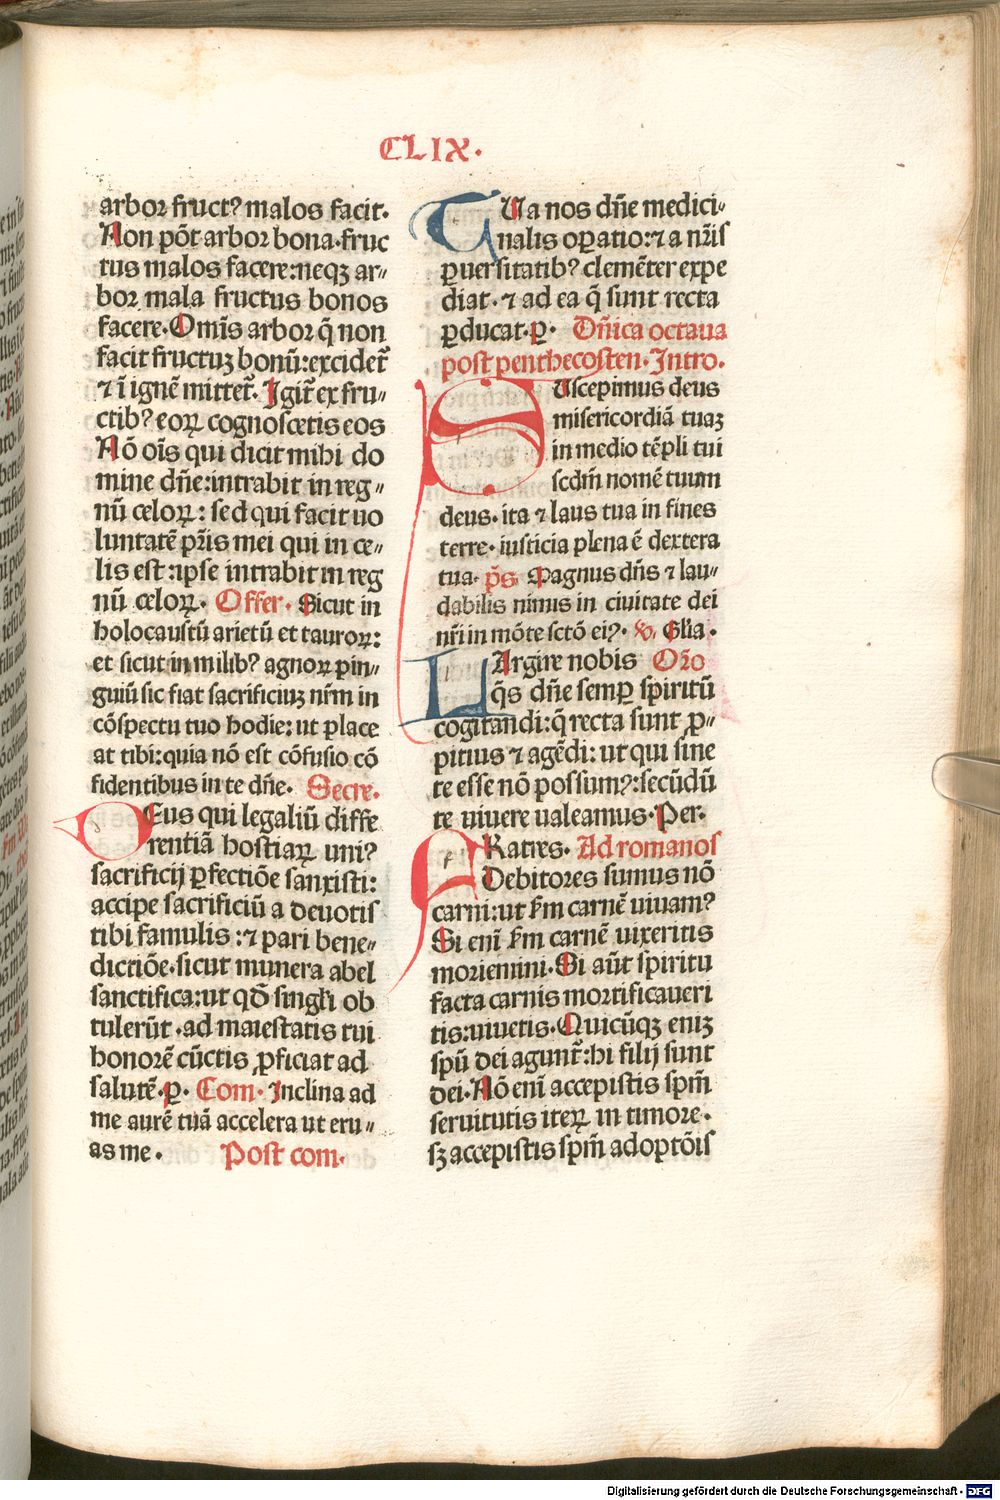 CLIX.
arbor fruct⁹ malos facit.
Non põt arbor bona.fruc
tus malos facere:neqꝫ ar⸗
bor mala fructus bonos
facere.Omīs arbor q̃ non
facit fructuꝫ bonū:excidet᷑
⁊ ī ignē mittet᷑. Igit᷑ ex fru⸗
ctib⁹ eoꝝ cognoscetis eos
Nō oīs qui dicit mihi do
mine dñe:intrabit in reg⸗
nū celoꝝ: sed qui facit uo
luntatē pr̃is mei qui in ce⸗
lis est :ipse intrabit in reg
nū celoꝝ. Offer. Sicut in
holocaustū arietū et tauroꝝ:
et sicut in milib⁹ agnoꝝ pin⸗
guiū sic fiat sacrificiuꝫ nr̃m in
cōspectu tuo hodie: ut place
at tibi: quia nō est cōfusio cō
fidentibus in te dñe. Secre.
DEus qui legaliū diffe
rentiā hostiaꝝ uni⁹
sacrificij ꝑfectiōe sanxisti:
accipe sacrificiū a deuotis
tibi famulis :⁊ pari bene⸗
dictiōe.sicut munera abel
sanctifica:ut qđ singłi ob
tulerūt .ad maiestatis tui
honorē cūctis ꝓficiat ad
salutē.ꝑ. Com. Inclina ad
me aurē tuā accelera ut eru⸗
as me . Post com.
TUa nos dñe medici⸗
nalis oꝑatio:⁊ a nr̃is
ꝑuersitatib⁹ clemēter expe
diat.⁊ ad ea q̃ sunt recta
ꝑducat.ꝑ. Dñica octaua
post penthecosten.Intro.
SUscepimus deus
misericordiā tuaꝫ
in medio tēpli tui
scdm̄ nomē tuum
deus.ita ⁊ laus tua in fines
terre.iusticia plena ē dextera
tua. p̄s. Magnus dñs ⁊ lau⸗
dabilis nimis in ciuitate dei
nr̃i in mōte sctō ei⁹. ℣. Gl̃ia.
LArgire nobis Or̃o
q̃s dñe semꝑ spiritū
cogitandi:q̃ recta sunt ꝓ⸗
pitius ⁊ agēdi: ut qui sine
te esse nō possum⁹:secūdū
te uiuere ualeamus.Per.
FRatres. Ad romanos
Debitores sumus nō
carni:ut ẜm carnē uiuam⁹
Si enī ẜm carnē uixeritis
moriemini.Si aūt spiritu
facta carnis mortificaueri
tis:uiuetis.Quicūqꝫ eniꝫ
spū dei agunt᷑:hi filij sunt
dei.Nō enī accepistis spm̄
seruitutis iteꝝ in timore.
sꝫ accepistis spm̄ adoptōis
Digitalisierung gefördert durch die Deutsche Forschungsgemeinschaft - DFG